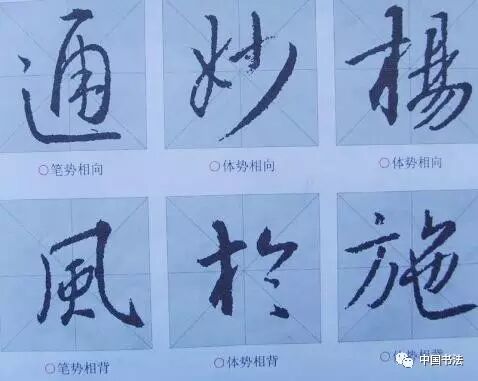 通 妙 楊
○笔势相向 ○体势相向 ○体势相向
風 於 施
○笔势相背 ○体势相背 ○体势相背
中国书法